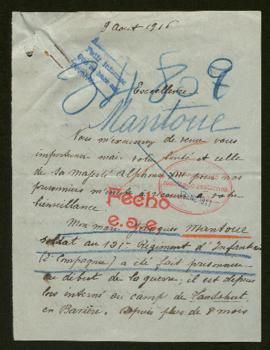 9 Août 1916
24829
Excellence
Mantoue
Vous m'excuserez de venir vous
importuner mais votre bonté et celle
de Sa Majesté Alphonse XIII pour nos
prisonniers m'incite à recourir à votre
bienveillance
Fecho
e.a.e
Mon mari Jacques Mantoue
soldat au 131e Régiment d'Infanterie
(2e Compagnie) a été fait prisonnier
au début de la guerre, il est depuis
lors interné au camp de Landshut,
en Bavière. Depuis plus de 8 mois